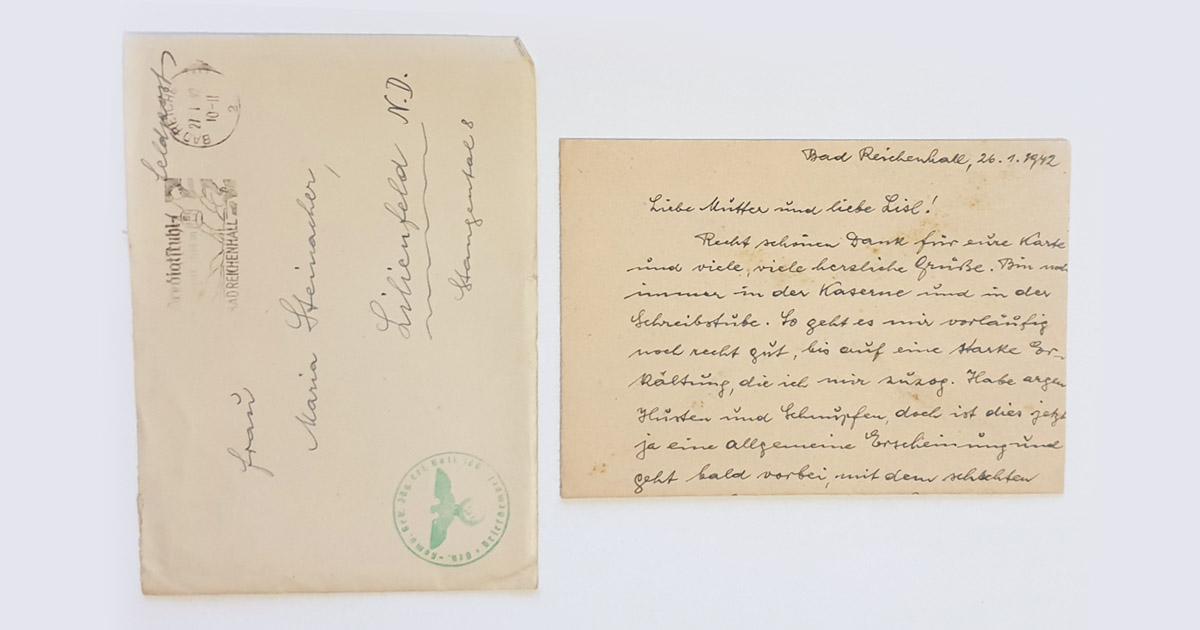 Feldpost
21.1.42
10-11
BAD REICHENHALL
Frau
Maria Steinacher,
Lilienfeld N.D.
Stangental 8
Bad Reichenhall, 26.1.1942
Liebe Mutter und liebe Lisl!
Recht schönen Dank für eure Karte
und viele, viele herzliche Grüße. Bin noch
immer in der Kaserne und in der
Schreibstube. So geht es mir vorläufig
noch recht gut, bis auf eine starke Er-
kältung, die ich mir zuzog. Habe argen
Husten und Schnupfen, doch ist dies jetzt
ja eine allgemeine Erscheinung und
geht bald vorbei, mit dem schlechten